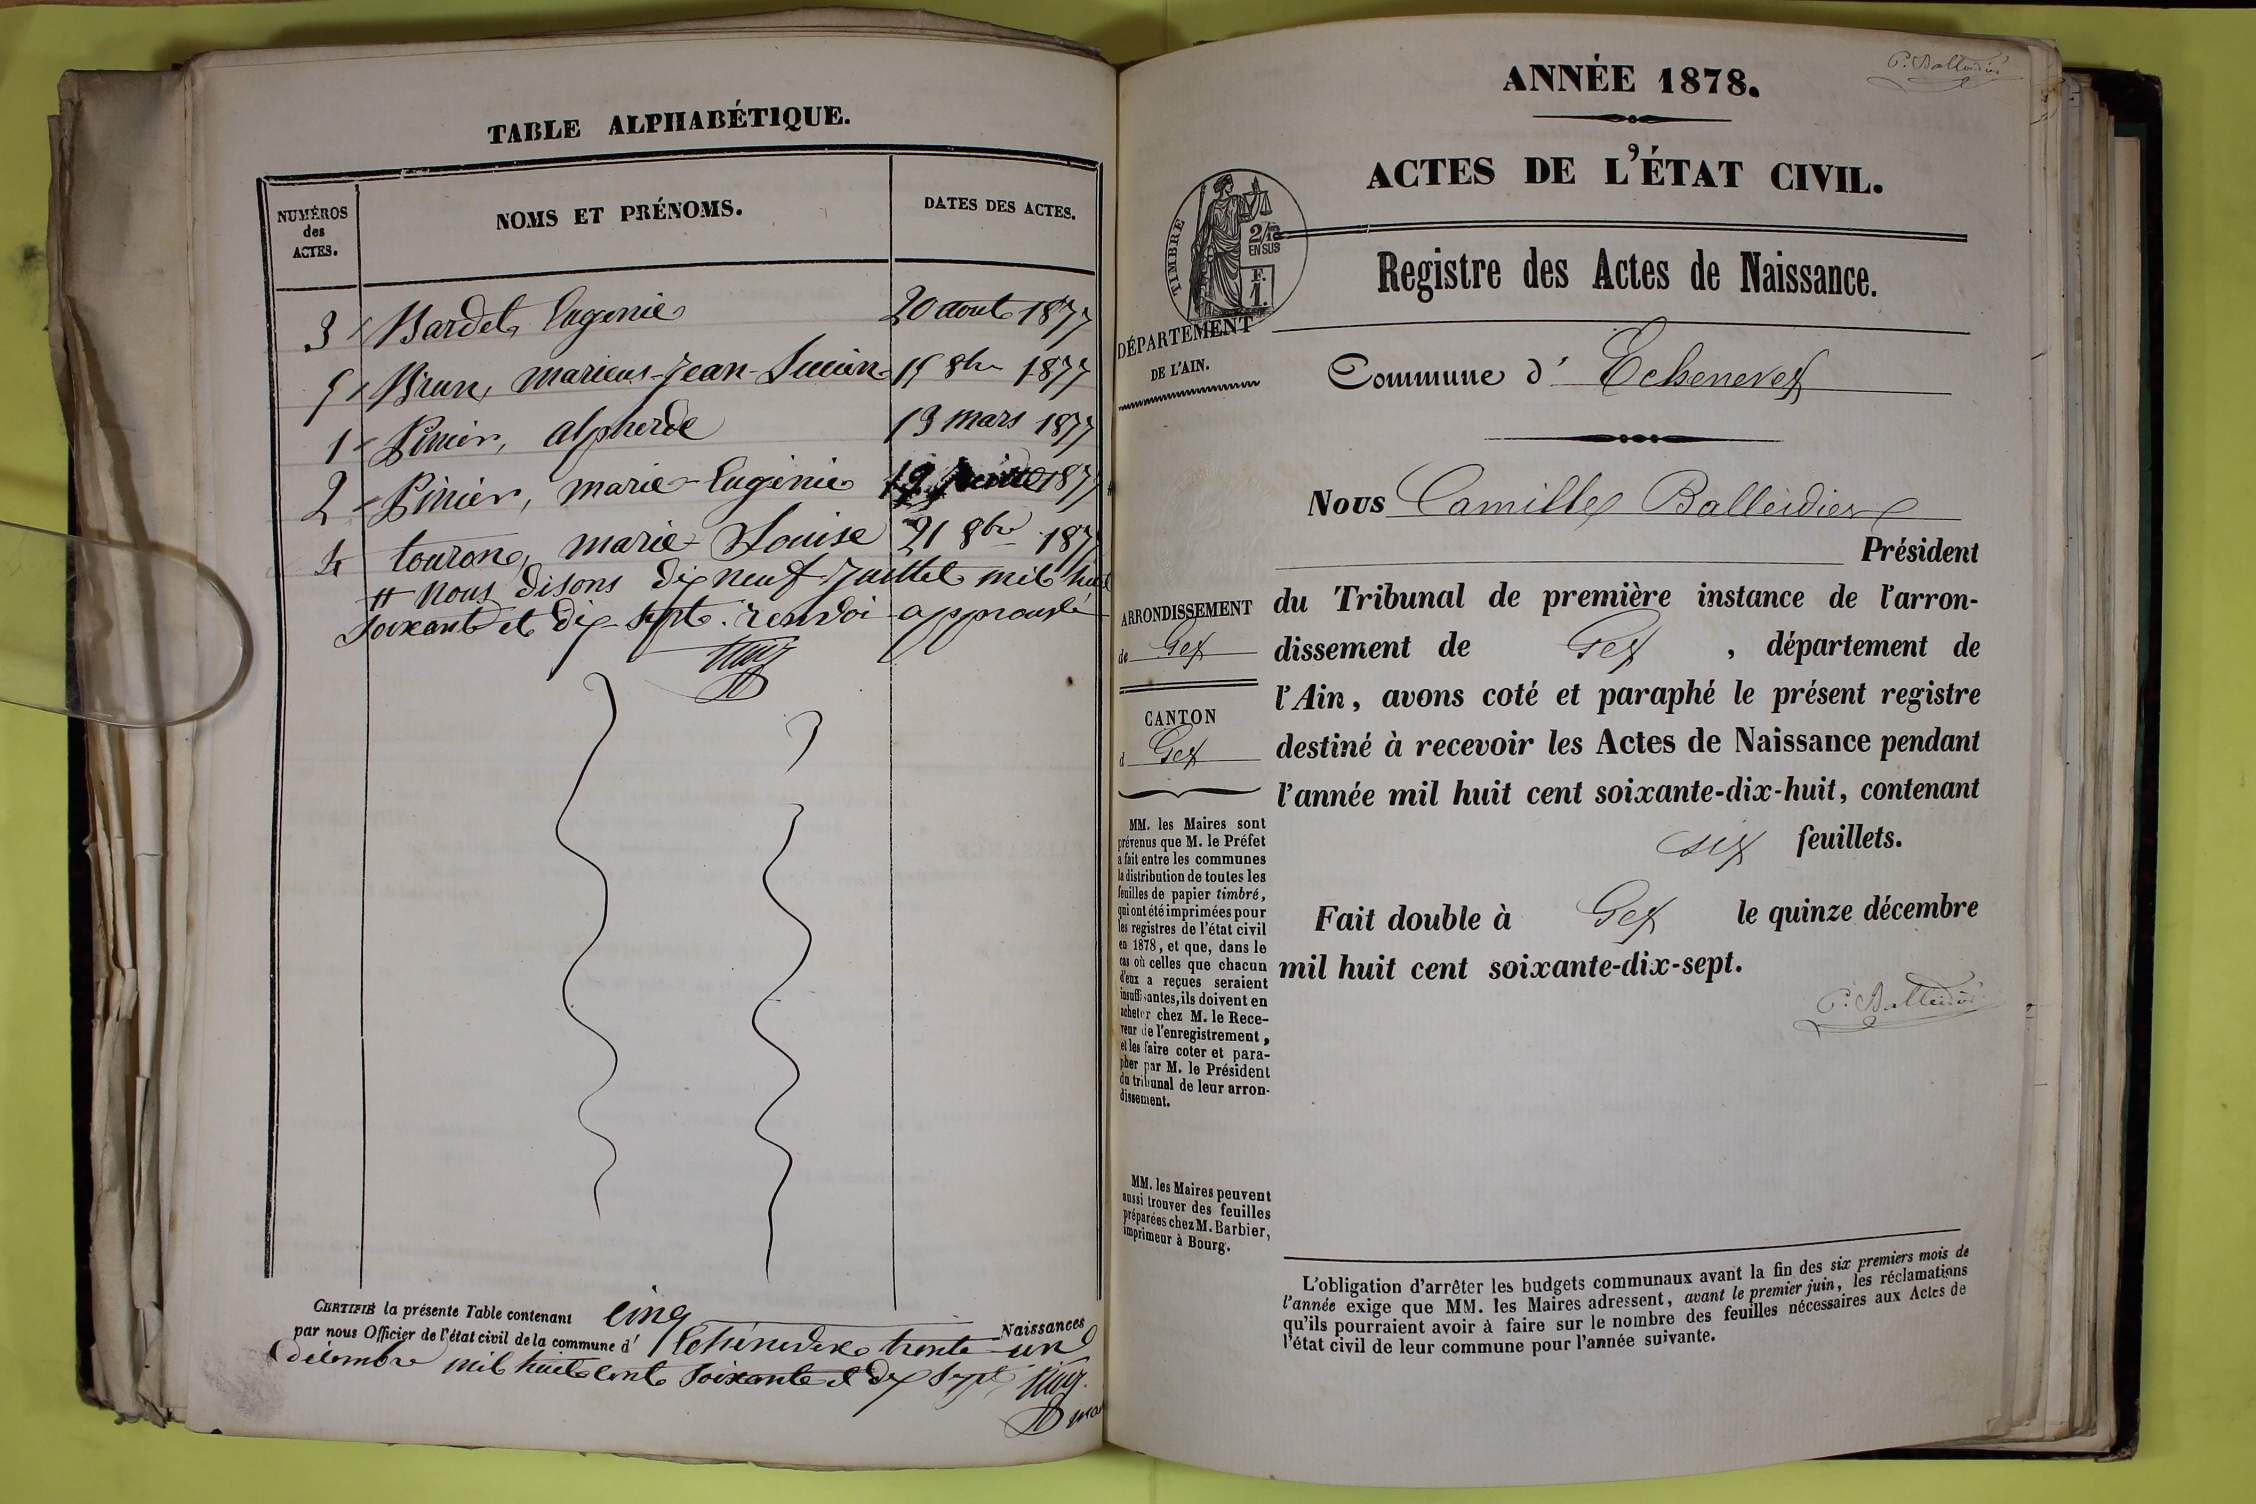 TABLE ALPHABÉTIQUE.
NUMÉROS des ACTES. NOMS ET PRÉNOMS. DATES DES ACTES.
3 Bardet, Eugenie 20 aout 1877
5 Brun, Marius-Jean-Lucien 15 8bre 1877
1 Pinier, alpherde 13 mars 1877
2 Pinier, marie-Eugénie 19 1877 #
4 tourone, marie-Louise 21 8bre 1877
# Nous disons dix neuf Juillet mil huit
soixante et dix-sept. renvoi approuvé
CERTIFIÉ la présente Table contenant cinq Naissances
par nous Officier de l'état civil de la commune d' Echenevex trente un
décembre mil huit cent soixante et dix sept
ANNÉE 1878.
C. Balleidier
ACTES DE L'ÉTAT CIVIL.
TIMBRE
2/10
EN SUS
F.
1.
Registre des Actes de Naissance.
DÉPARTEMENT
DE L'AIN.
Commune d' Echenevex
Nous Camille Balleidier
Président
du Tribunal de première instance de l'arron-
dissement de Gex, département de
l'Ain, avons coté et paraphé le présent registre
destiné à recevoir les Actes de Naissance pendant
l'année mil huit cent soixante-dix-huit, contenant
six feuillets.
Fait double à Gex le quinze décembre
mil huit cent soixante-dix-sept.
C. Balleidier
ARRONDISSEMENT
de Gex
CANTON
d Gex
MM. les Maires sont
prévenus que M. le Préfet
a fait entre les communes
la distribution de toutes les
feuilles de papier timbré,
qui ont été imprimées pour
les registres de l'état civil
en 1878, et que, dans le
cas où celles que chacun
d'eux a reçues seraient
insuffisantes, ils doivent en
acheter chez M. le Rece-
veur de l'enregistrement,
et les faire coter et para-
pher par M. le Président
du tribunal de leur arron-
dissement.
MM. les Maires peuvent
aussi trouver des feuilles
préparées chez M. Barbier,
imprimeur à Bourg.
L'obligation d'arrêter les budgets communaux avant la fin des six premiers mois de
l'année exige que MM. les Maires adressent, avant le premier juin, les réclamations
qu'ils pourraient avoir à faire sur le nombre des feuilles nécessaires aux Actes de
l'état civil de leur commune pour l'année suivante.